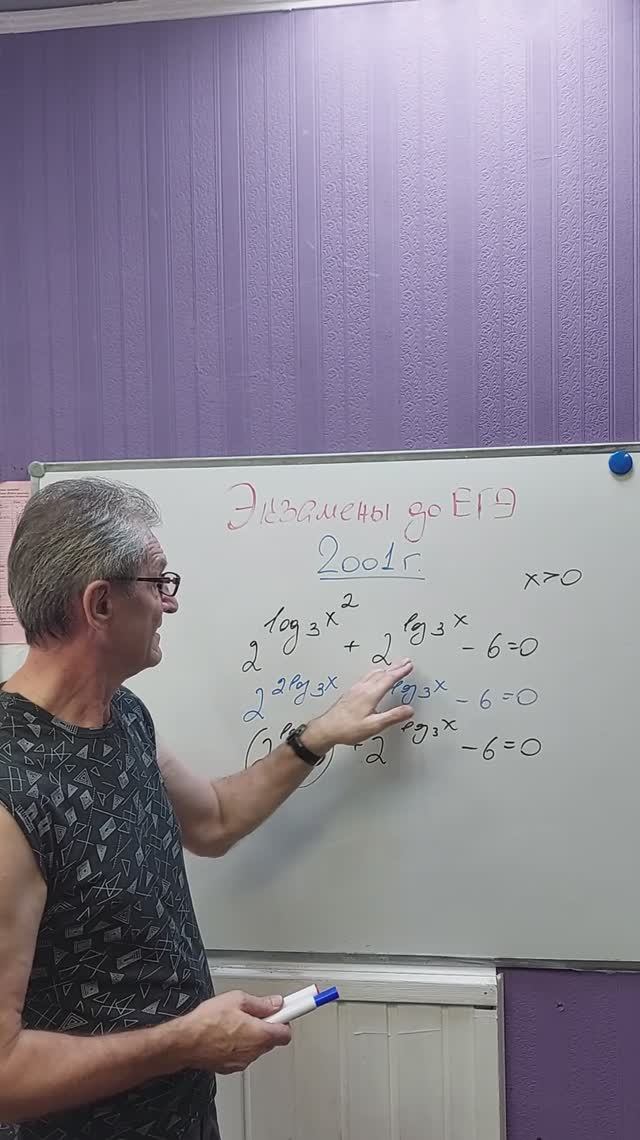 Экзамены до ЕГЭ
2001 г.
x>0
2^{log_3 x^2} + 2^{lg_3 x} - 6=0
2^{2lg_3 x} lg_3 x - 6=0
(2 + 2^{lg_3 x} - 6=0